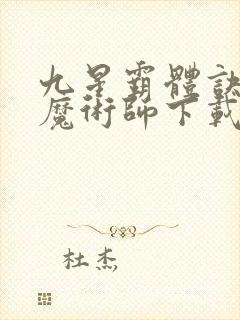 九星霸體訣
魔術師下載
杜杰